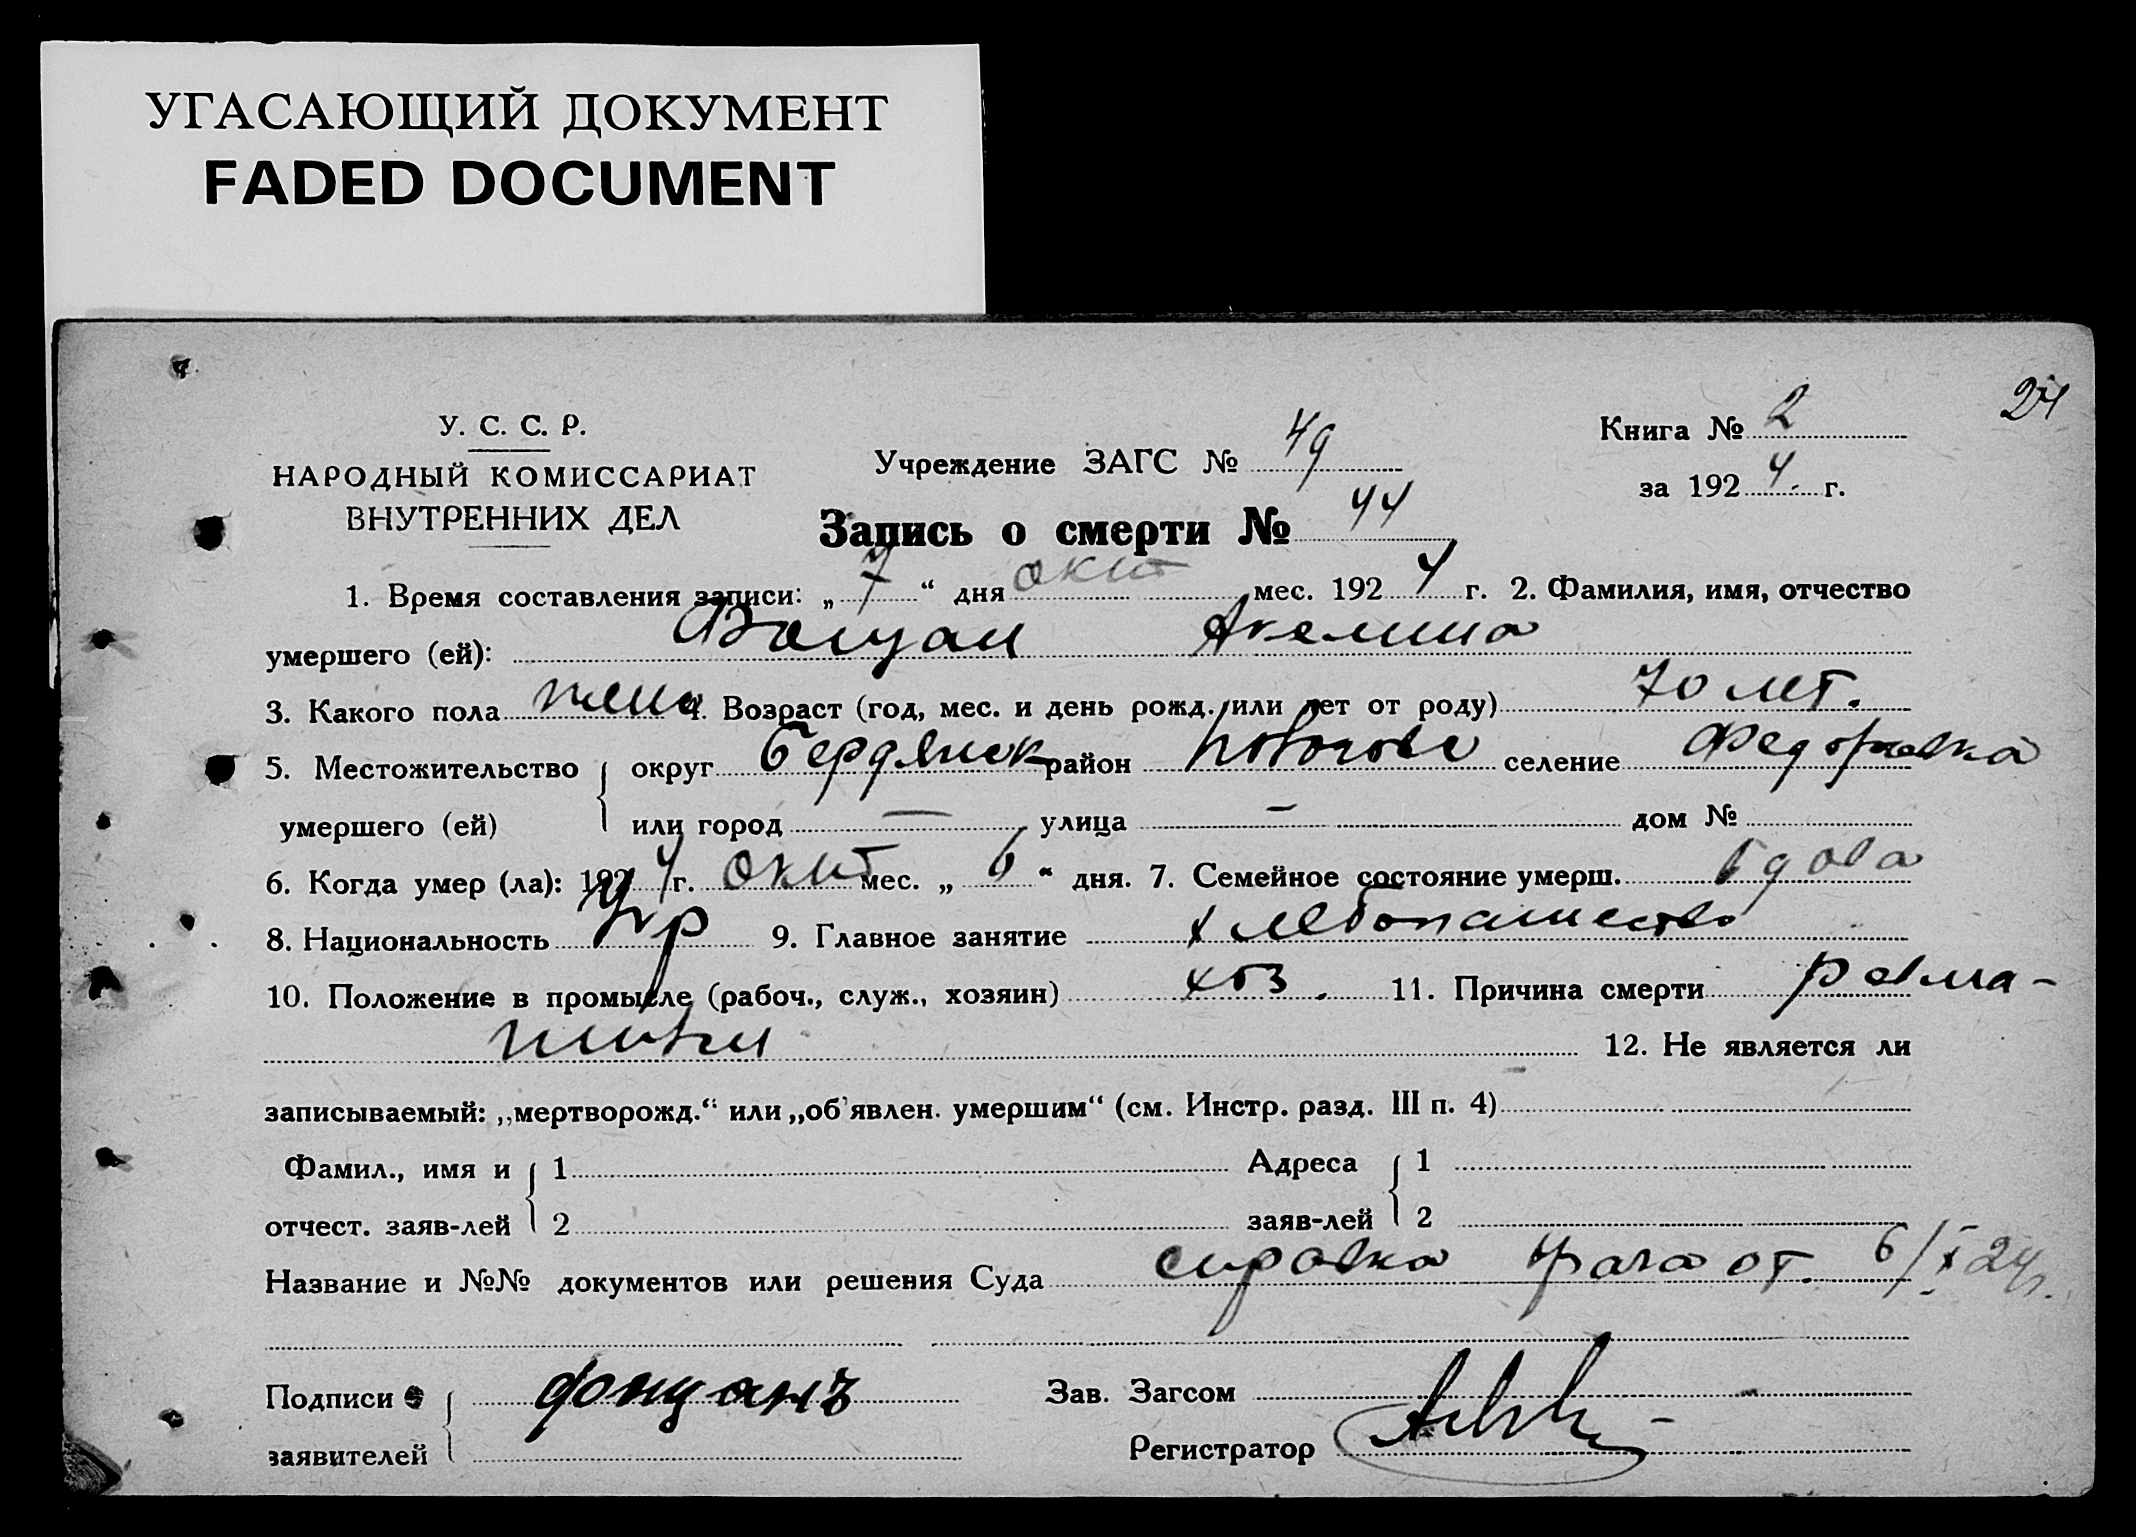 УГАСАЮЩИЙ ДОКУМЕНТ
FADED DOCUMENT
24
У. С. С. Р.
НАРОДНЫЙ КОМИССАРИАТ
ВНУТРЕННИХ ДЕЛ
Учреждение ЗАГС № 49
Книга № 2
за 1924 г.
Запись о смерти № 44
1. Время составления записи: „7“ дня окт мес. 1924 г. 2. Фамилия, имя, отчество
умершего (ей): Акелина
3. Какого пола жен 4. Возраст (год, мес. и день рожд. или лет от роду) 70 лет.
5. Местожительство округ Бердянск район селение Федоровка
умершего (ей) или город — улица — дом №
6. Когда умер (ла): 1924 г. окт мес. „6“ дня. 7. Семейное состояние умерш. вдова
8. Национальность Укр 9. Главное занятие хлебопашество
10. Положение в промысле (рабоч., служ., хозяин) хоз. 11. Причина смерти
12. Не является ли
записываемый: „мертворожд.“ или „об'явлен. умершим“ (см. Инстр. разд. III п. 4)
Фамил., имя и 1 Адреса 1
отчест. заяв-лей 2 заяв-лей 2
Название и №№ документов или решения Суда справка врача от. 6/X 24 г.
Подписи Фонцанъ Зав. Загсом
заявителей Регистратор